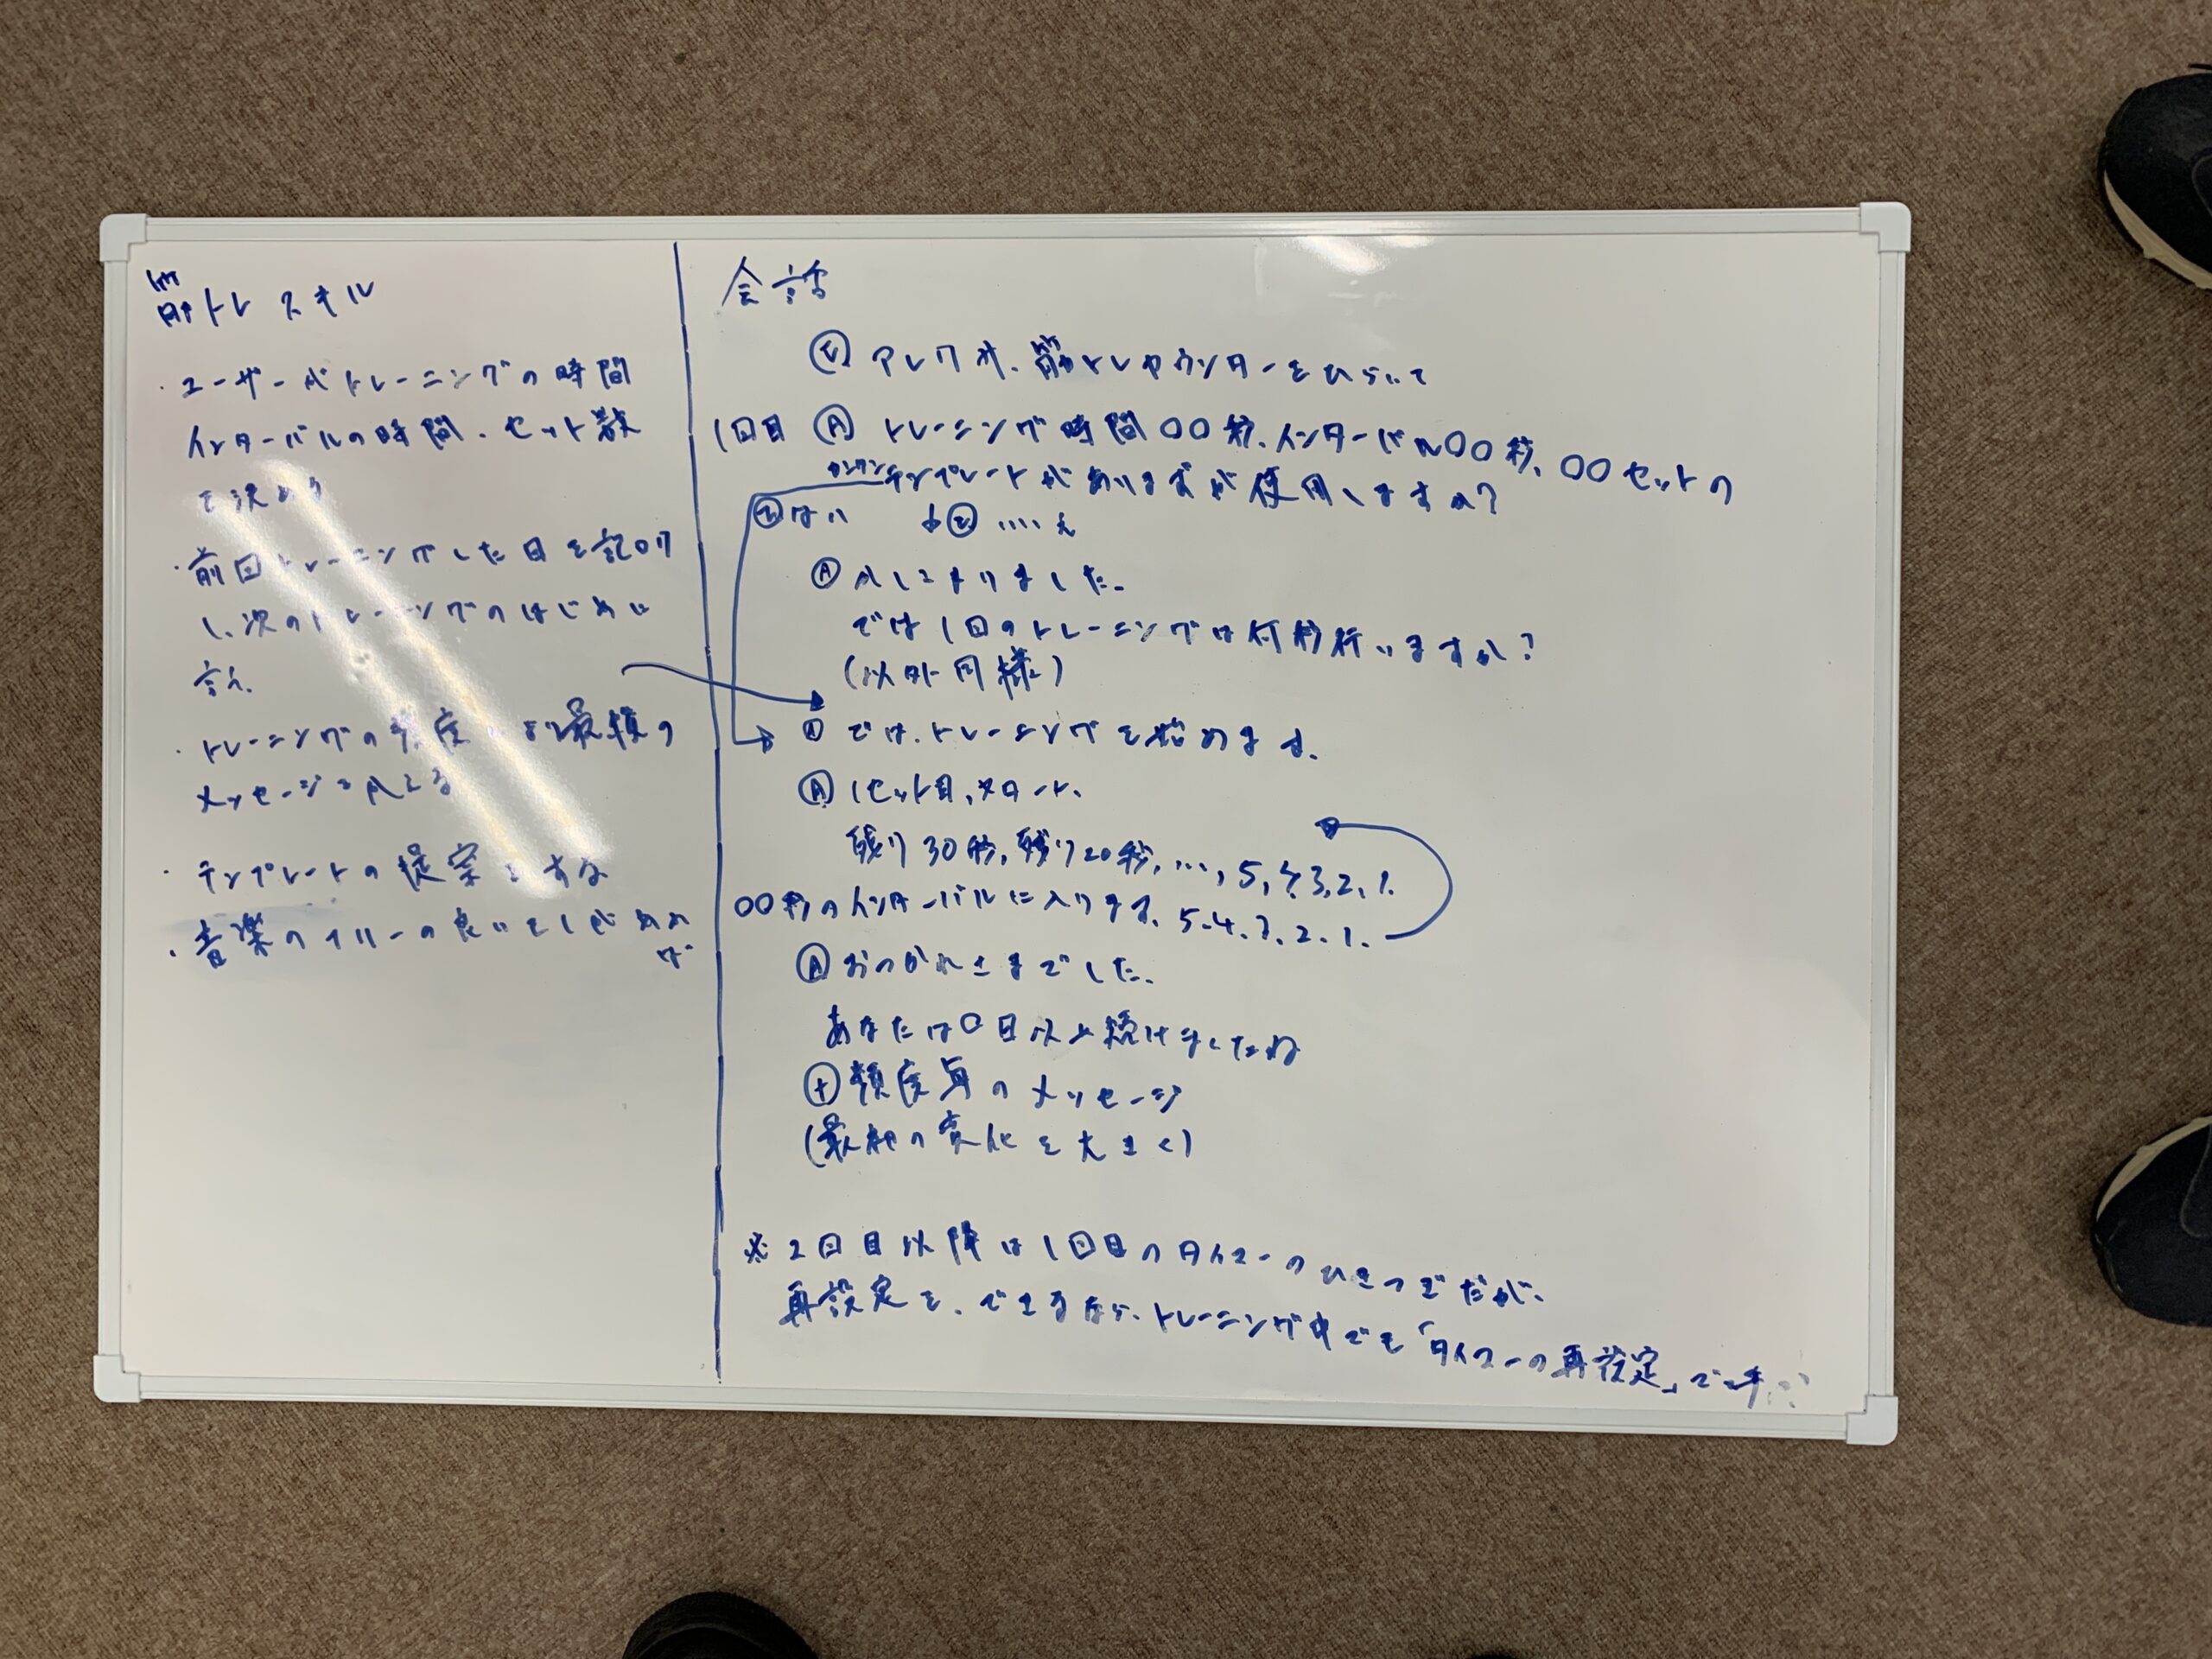 筋トレ スキル
・ユーザーがトレーニングの時間
インターバルの時間、セット数
を決める
・前回トレーニングした日を記録
し、次のトレーニングのはじめに
言う.
・トレーニングの頻度 最後の
メッセージを変える
・テンプレートの提案をする
・音楽の の良い
会話
Ⓔ アレクサ、筋トレカウンターをひらいて
1回目 Ⓐ トレーニング時間〇〇秒、インターバル〇〇秒、〇〇セットの
カンタンテンプレートがありますが使用しますか?
はい いいえ
Ⓐ かしこまりました.
では1回のトレーニングは何秒行いますか?
(以外同様)
Ⓐ では、トレーニングを始めます.
Ⓐ 1セット目,スタート、
残り30秒,残り20秒, …, 5, 4, 3, 2, 1.
〇〇秒のインターバルに入ります、5. 4. 3. 2. 1.
Ⓐ おつかれさまでした.
あなたは〇日以上続けましたね
⊕ 頻度毎のメッセージ
(最初の変化を大きく)
※ 2回目以降は1回目のタイマーのひきつぎだが、
再設定も、できるなら、トレーニング中でも「タイマーの再設定」で呼ぶ